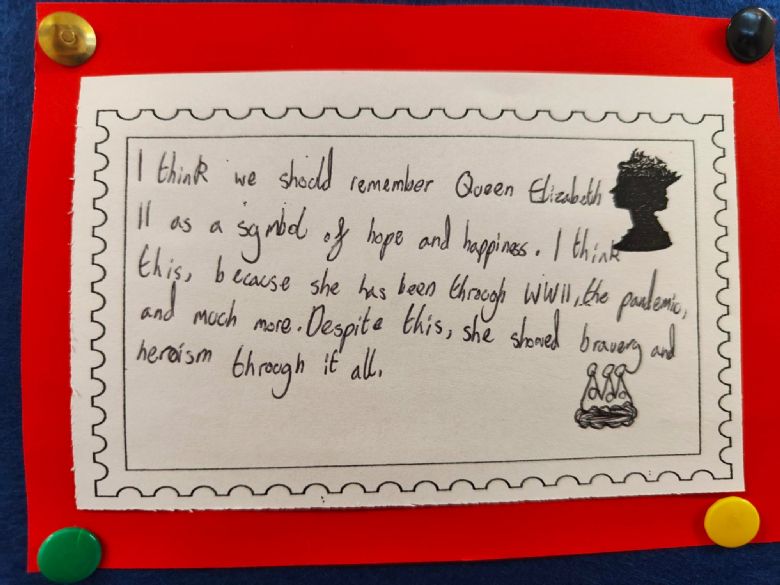 I think we should remember Queen Elizabeth
II as a symbol of hope and happiness. I think
this, because she has been through WWII, the pandemic,
and much more. Despite this, she showed bravery and
heroism through it all.